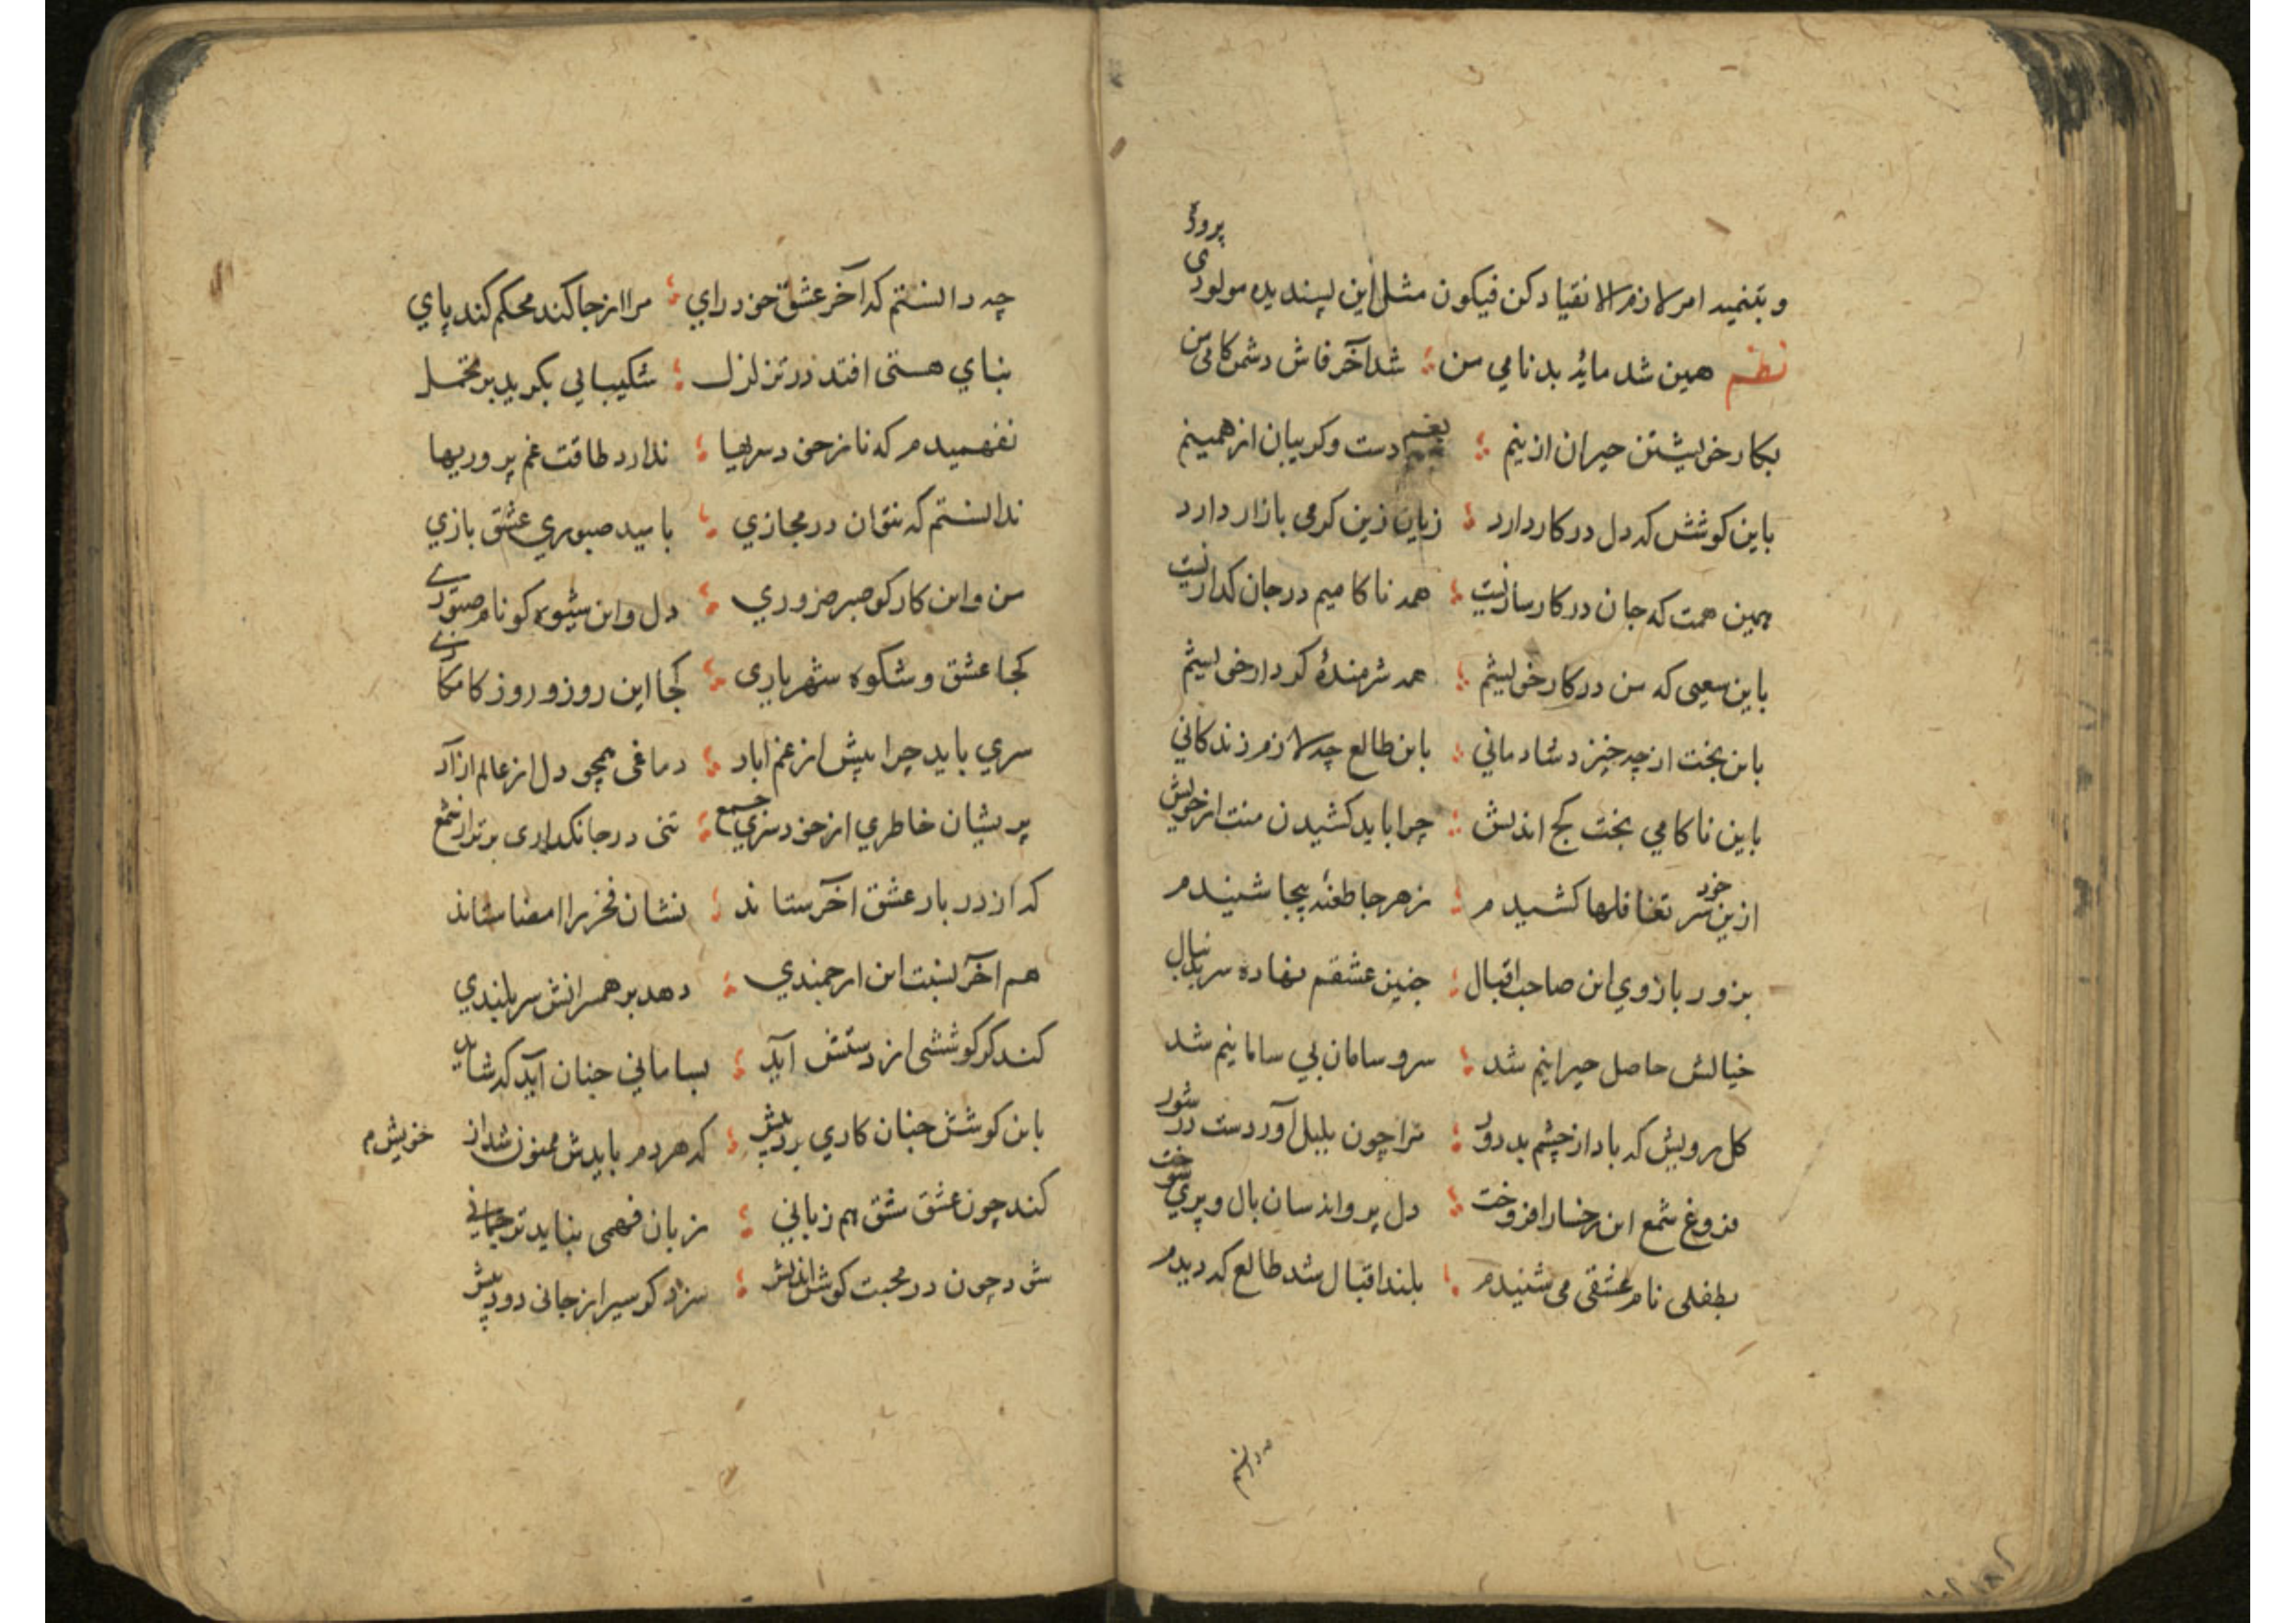 پرور
و بتنمید امر لازم الانقیاد کن فیکون مثل این پسندیده مولودی
نظم همین شد مایۀ بدنامی من ؛ شد آخر فاش دشمن کامی من
بکار خویشتن حیران ازینم ؛ بغیر دست و کریبان از همینم
باین کوشش که دل در کار دارد ؛ زیان زین کرمی بازار دارد
بهمین همت که جان در کارسازیست ؛ همه ناکامیم در جان کدازیست
باین سعیی که من در کار خویشم ؛ همه شرمندۀ کردار خویشم
باین بخت از چه خیزد شادمانی ؛ باین طالع چه لازم زندکانی
باین ناکامی بخت کج اندیش ؛ چرا باید کشیدن منت از خویش
ازین خود سر تغافلها کشیدم ؛ ز هر جا طعنۀ بیجا شنیدم
بزور بازوی این صاحب اقبال ؛ چنین عشقم نهاده سر بدنبال
خیالش حاصل حیرانیم شد ؛ سر و سامان بی سامانیم شد
کل رویش که باد از چشم بد دور ؛ مرا چون بلبل آورد ست در شور
فروغ شمع این رخسار افروخت ؛ دل پروانه سان بال و پری سوخت
بطفلی نام عشقی می شنیدم ؛ بلند اقبال شد طالع که دیدم
چه دانستم
چه دانستم که آخر عشق خود رای ؛ مرا از جا کند محکم کند پای
بنای هستی افتد در تزلزل ؛ شکیبایی بکرید بر تحمل
نفهمیدم که ناز خود سریها ؛ ندارد طاقت غم پروریها
ندانستم که نتوان در مجازی ؛ بامید صبوری عشق بازی
من و این کار کو صبر ضروری ؛ دل و این شیوه کو نام صبوری
کجا عشق و شکوه شهریاری ؛ کجا این روز و روز کامکاری
سری باید چرا بیش از غم اباد ؛ دماغی همچو دل از عالم ازاد
پریشان خاطری از خود سری جمع ؛ تنی در جانکدازی برتر از شمع
که از دربار عشق آخر ستاند ؛ نشان فخر را امضا ستاند
هم آخر نسبت این ارجمندی ؛ دهد بر همسرانش سربلندی
کند کر کوششی از دستش آید ؛ بسامانی چنان آید که شاید
باین کوشش چنان کاری برد پیش ؛ که هر دم بایدش ممنون شد از خویش م
کند چون عشق مشق هم زبانی ؛ زبان فهمی نباید ترجمانی
شود چون در محبت کوشش اندیش ؛ سزد کو سیر از جانی دود پیش